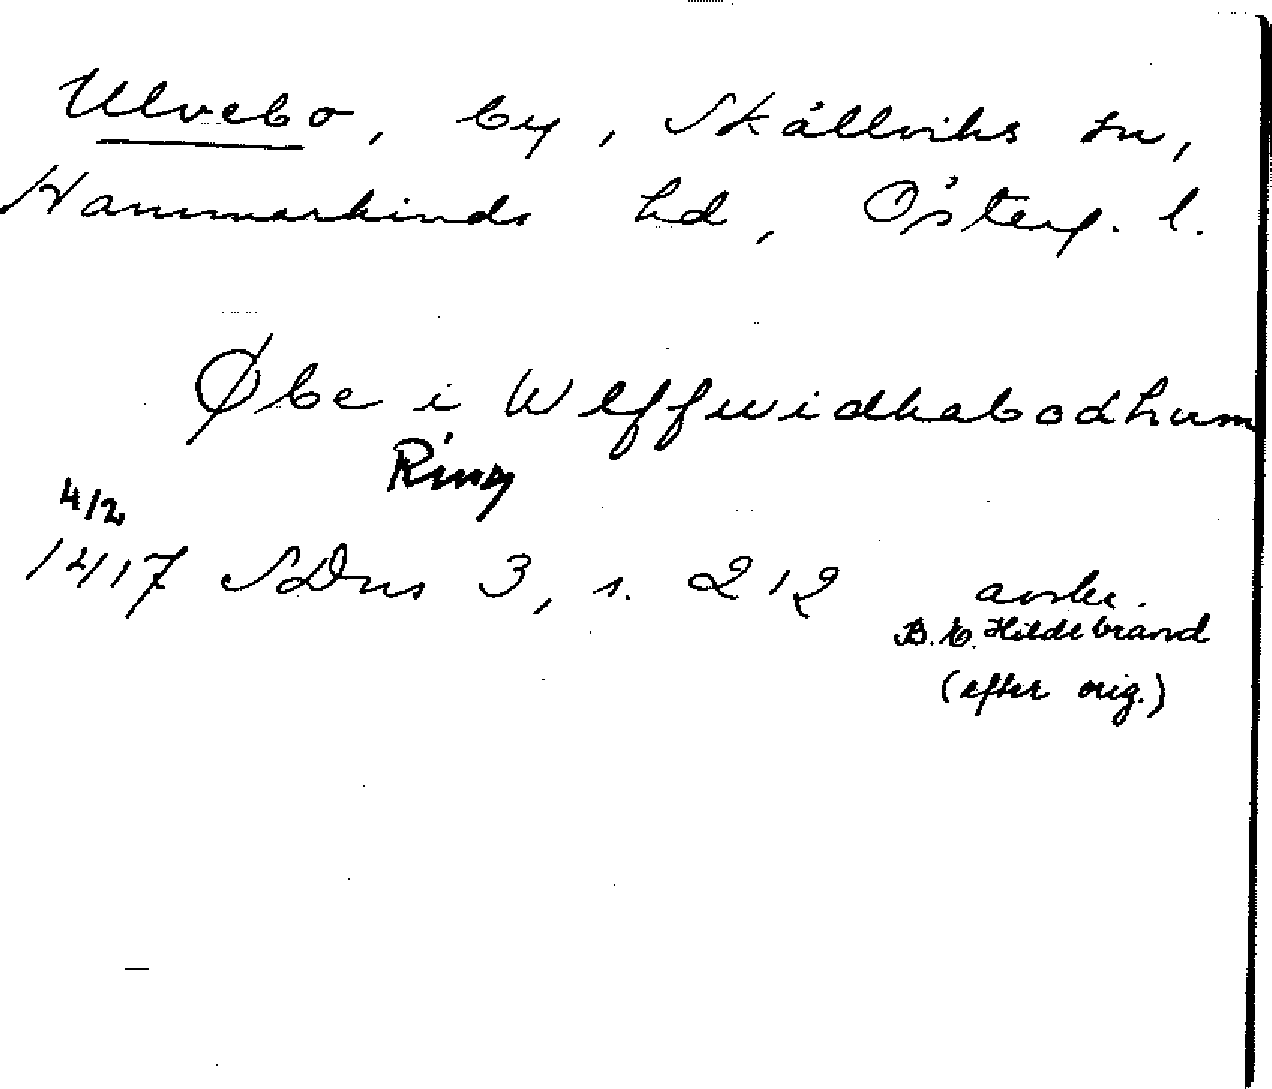 Ulvebo, by, Skällviks sn,
Hammarkinds hd, Österg. l.
Øbe i Wlffwidhabodhum
Ring
4/2
1417 SDns 3, s. 212 avskr.
B. E. Hildebrand
(efter orig.)